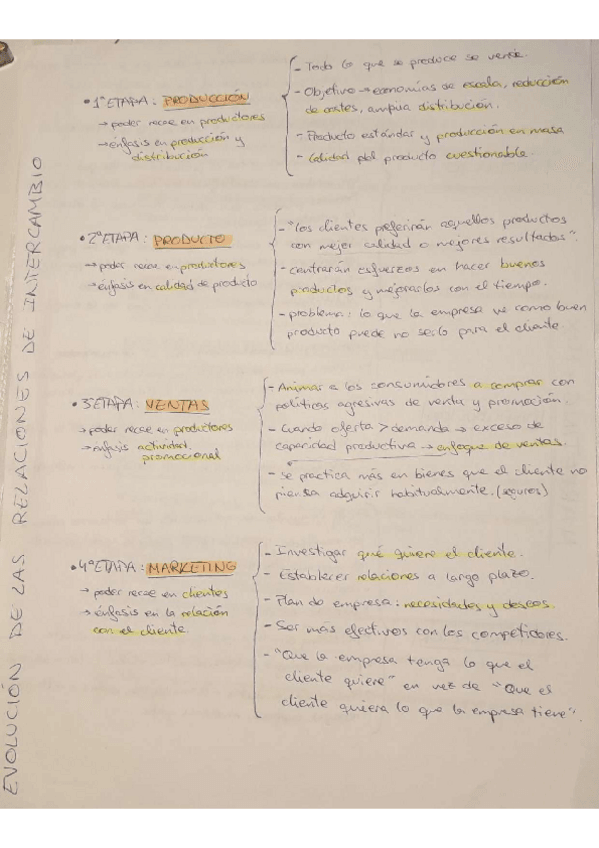 EVOLUCIÓN DE LAS RELACIONES DE INTERCAMBIO
• 1ª ETAPA: PRODUCCIÓN
→ poder recae en productores
→ énfasis en producción y
distribución
- Todo lo que se produce se vende.
- Objetivo → economías de escala, reducción
de costes, amplia distribución.
- Producto estándar y producción en masa
- Calidad del producto cuestionable.
• 2ª ETAPA: PRODUCTO
→ poder recae en productores
→ énfasis en calidad de producto
- "Los clientes preferirán aquellos productos
con mejor calidad o mejores resultados".
- centrarán esfuerzos en hacer buenos
productos y mejorarlos con el tiempo.
- problema: lo que la empresa ve como buen
producto puede no serlo para el cliente.
• 3ª ETAPA: VENTAS
→ poder recae en productores
→ énfasis actividad
promocional
- Animar a los consumidores a comprar con
políticas agresivas de venta y promoción.
- Cuando oferta > demanda → exceso de
capacidad productiva → enfoque de ventas.
- se practica más en bienes que el cliente no
piensa adquirir habitualmente. (seguros)
• 4ª ETAPA: MARKETING
→ poder recae en clientes
→ énfasis en la relación
con el cliente
- Investigar qué quiere el cliente.
- Establecer relaciones a largo plazo.
- Plan de empresa: necesidades y deseos.
- Ser más efectivos con los competidores.
- "Que la empresa tenga lo que el
cliente quiere" en vez de "Que el
cliente quiera lo que la empresa tiene".